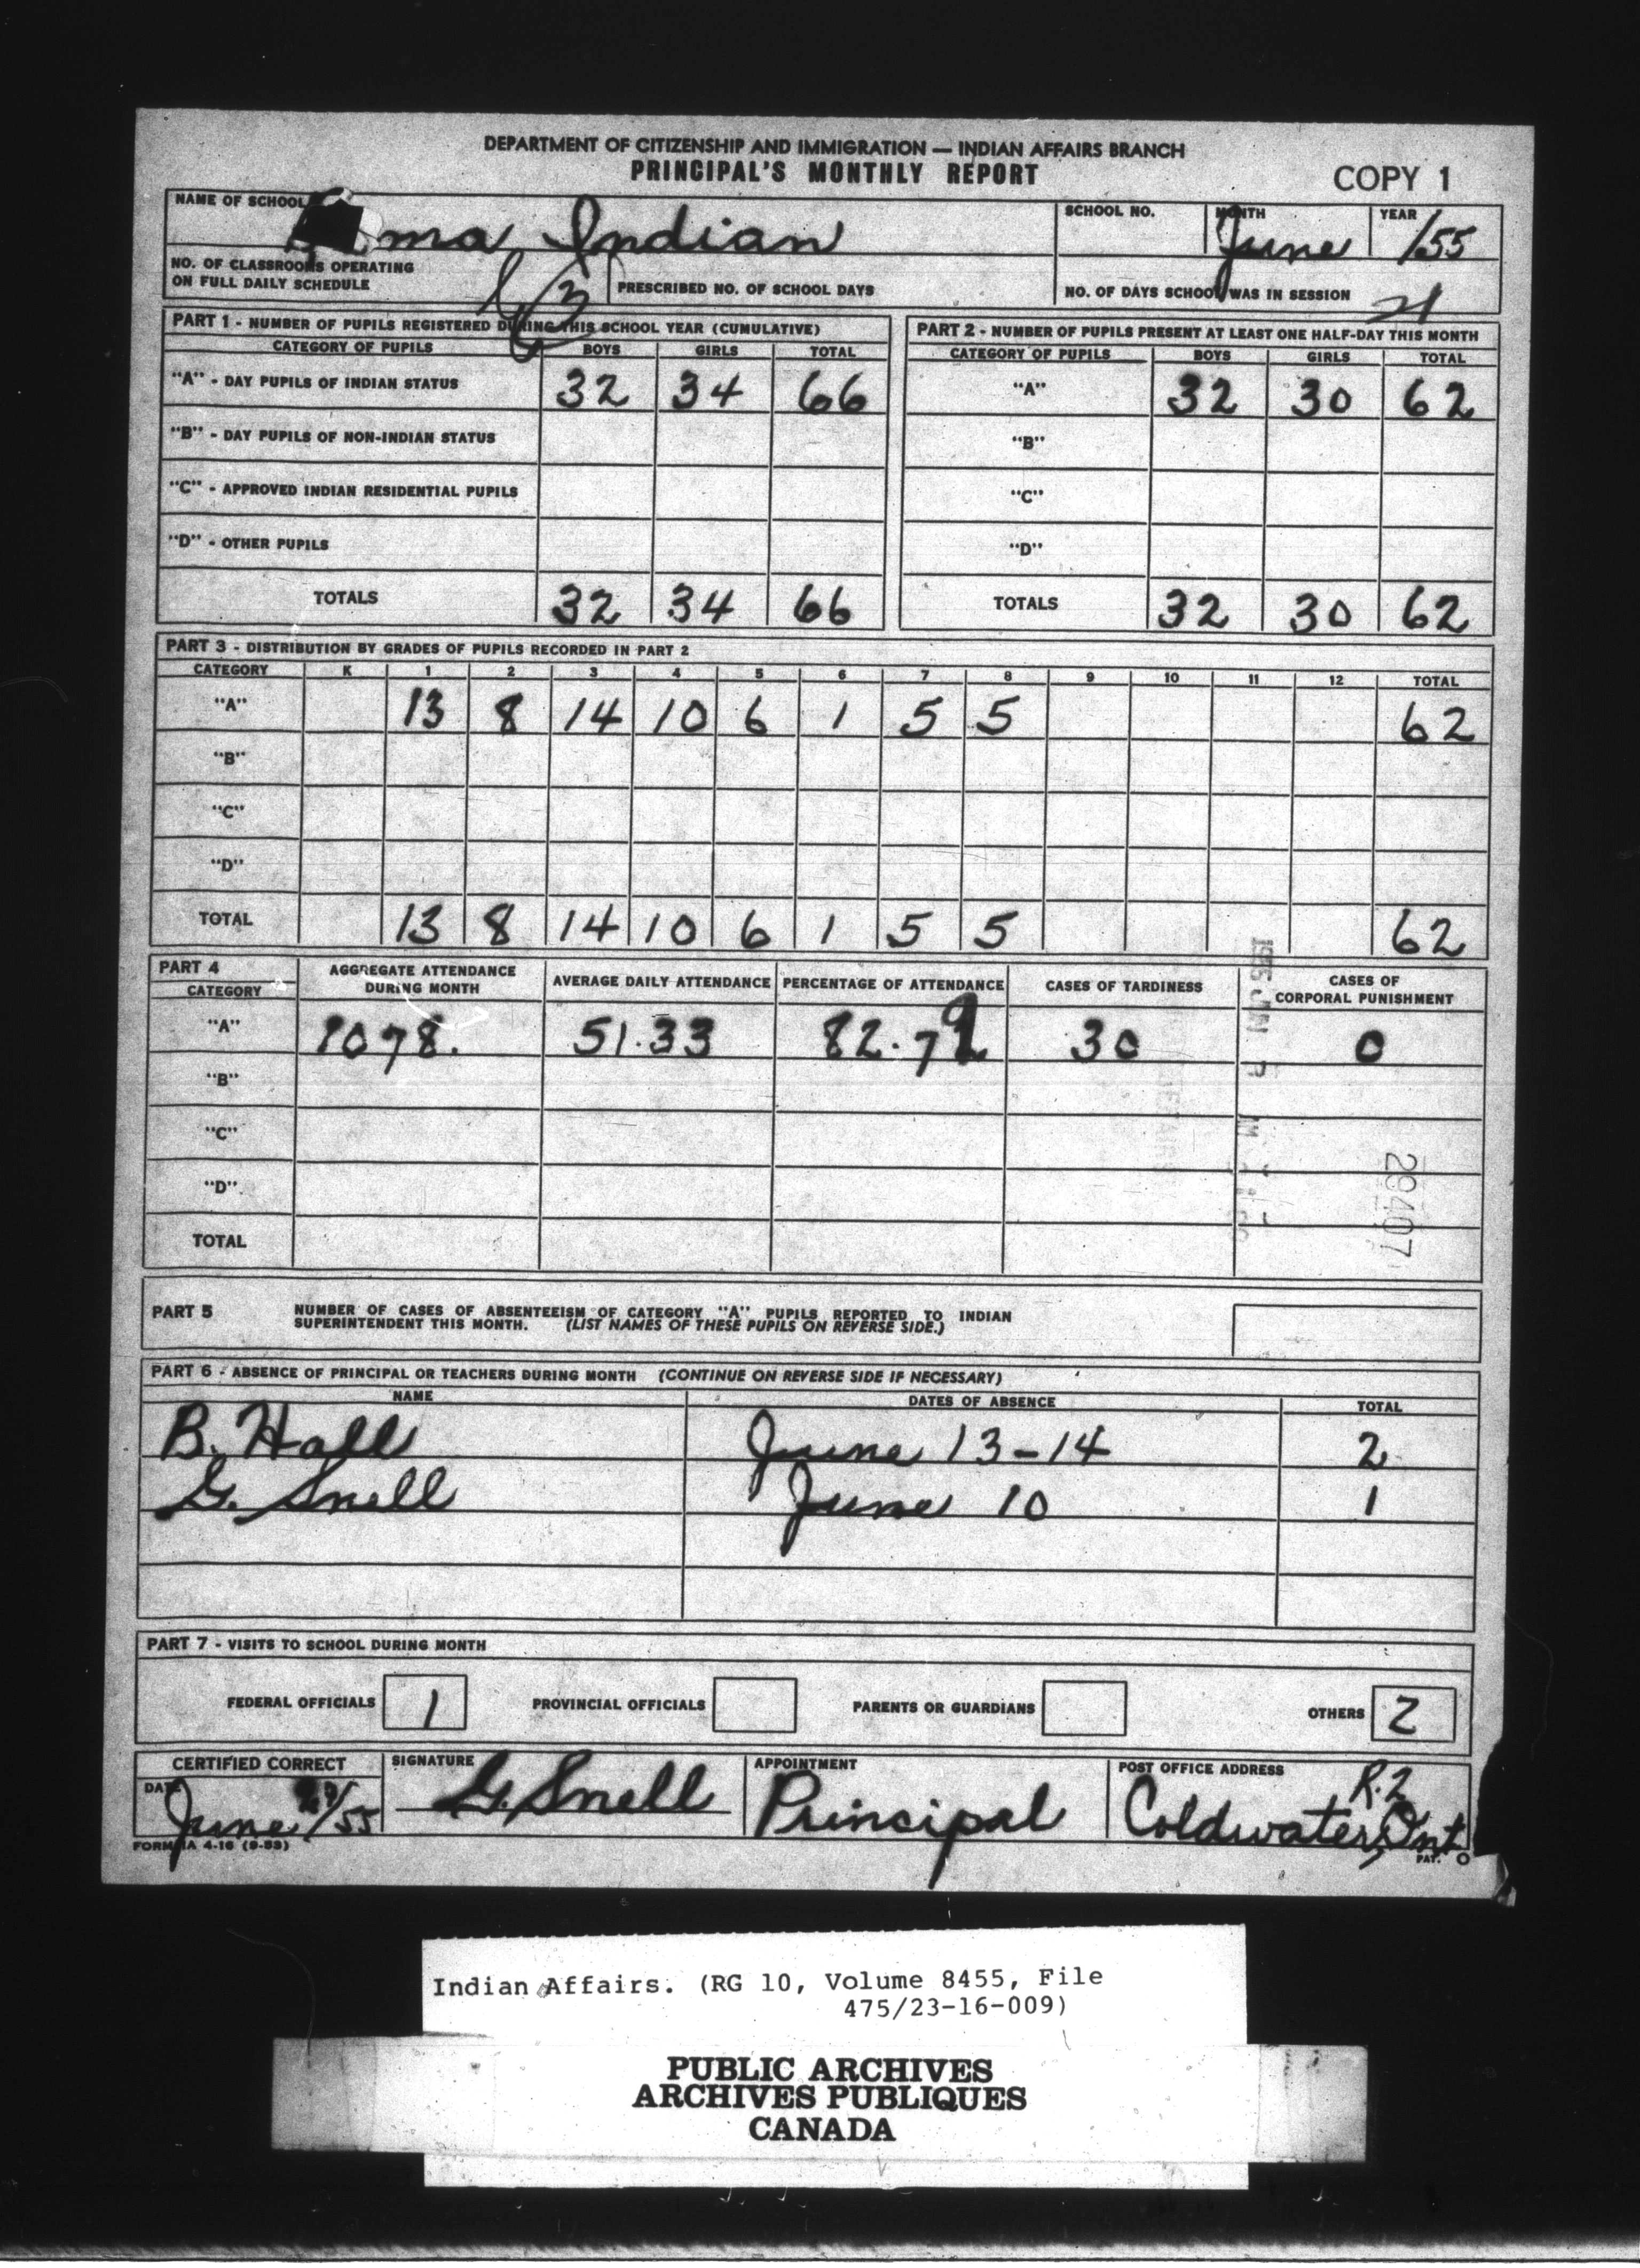 DEPARTMENT OF CITIZENSHIP AND IMMIGRATION — INDIAN AFFAIRS BRANCH
PRINCIPAL'S MONTHLY REPORT
COPY 1
NAME OF SCHOOL Indian
SCHOOL NO.
MONTH June
YEAR /55
NO. OF CLASSROOMS OPERATING
ON FULL DAILY SCHEDULE 3
PRESCRIBED NO. OF SCHOOL DAYS
NO. OF DAYS SCHOOL WAS IN SESSION 21
PART 1 - NUMBER OF PUPILS REGISTERED DURING THIS SCHOOL YEAR (CUMULATIVE)
CATEGORY OF PUPILS BOYS GIRLS TOTAL
"A" - DAY PUPILS OF INDIAN STATUS 32 34 66
"B" - DAY PUPILS OF NON-INDIAN STATUS
"C" - APPROVED INDIAN RESIDENTIAL PUPILS
"D" - OTHER PUPILS
TOTALS 32 34 66
PART 2 - NUMBER OF PUPILS PRESENT AT LEAST ONE HALF-DAY THIS MONTH
CATEGORY OF PUPILS BOYS GIRLS TOTAL
"A" 32 30 62
"B"
"C"
"D"
TOTALS 32 30 62
PART 3 - DISTRIBUTION BY GRADES OF PUPILS RECORDED IN PART 2
CATEGORY K 1 2 3 4 5 6 7 8 9 10 11 12 TOTAL
"A" 13 8 14 10 6 1 5 5 62
"B"
"C"
"D"
TOTAL 13 8 14 10 6 1 5 5 62
PART 4
CATEGORY
AGGREGATE ATTENDANCE
DURING MONTH
AVERAGE DAILY ATTENDANCE
PERCENTAGE OF ATTENDANCE
CASES OF TARDINESS
CASES OF
CORPORAL PUNISHMENT
"A" 1078. 51.33 82.79 30 0
"B"
"C"
"D"
TOTAL
29407
PART 5 NUMBER OF CASES OF ABSENTEEISM OF CATEGORY "A" PUPILS REPORTED TO INDIAN
SUPERINTENDENT THIS MONTH. (LIST NAMES OF THESE PUPILS ON REVERSE SIDE.)
PART 6 - ABSENCE OF PRINCIPAL OR TEACHERS DURING MONTH (CONTINUE ON REVERSE SIDE IF NECESSARY)
NAME DATES OF ABSENCE TOTAL
B. Hall June 13-14 2
G. Snell June 10 1
PART 7 - VISITS TO SCHOOL DURING MONTH
FEDERAL OFFICIALS 1 PROVINCIAL OFFICIALS PARENTS OR GUARDIANS OTHERS 2
CERTIFIED CORRECT
DATE June /55
SIGNATURE G. Snell
APPOINTMENT Principal
POST OFFICE ADDRESS R.2
Coldwater, Ont.
FORM IA 4-16 (9-53)
PAT. O
Indian Affairs. (RG 10, Volume 8455, File
475/23-16-009)
PUBLIC ARCHIVES
ARCHIVES PUBLIQUES
CANADA